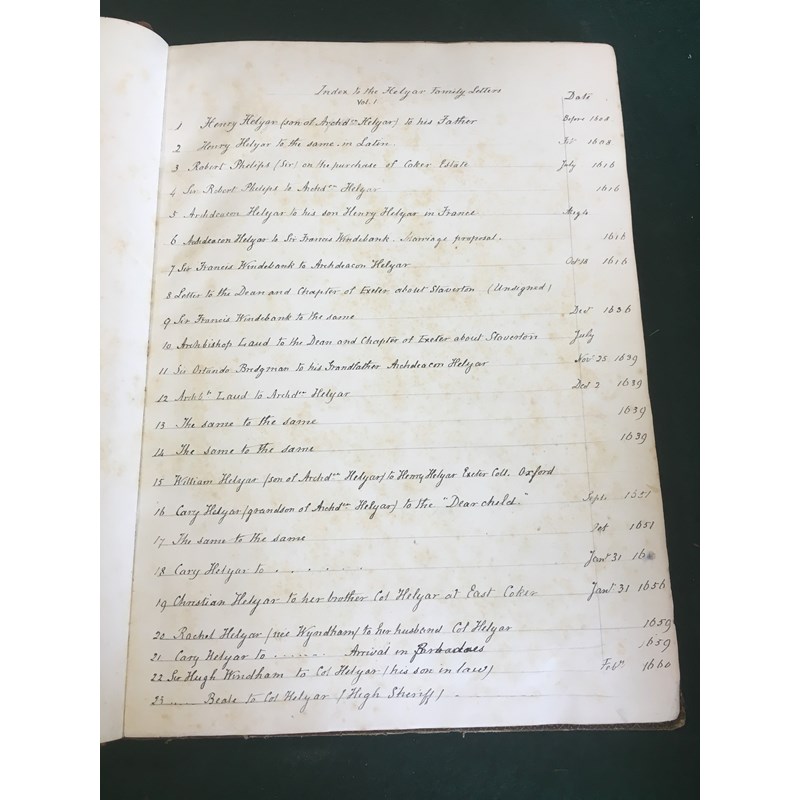 Index to the Helyar Family Letters
Vol. 1
Date
1 Henry Helyar (son of Archdcn Helyar) to his Father Before 1608
2 Henry Helyar to the same in Laten 1608
3 Robert Phelips (Sir) on the purchase of Coker Estate July 1616
4 Sir Robert Phelips to Archdcn Helyar 1616
5 Archdeacon Helyar to his son Henry Helyar in France
6 Archdeacon Helyar to Sir Francis Windebank. Marriage proposal. 1616
7 Sir Francis Windebank to Archdeacon Helyar Oct 18 1616
8 Letter to the Dean and Chapter of Exeter about Staverton (Unsigned)
9 Sir Francis Windebank to the same Decr 1636
10 Archbishop Laud to the Dean and Chapter of Exeter about Staverton July
11 Sir Orlando Bredgman to his Grandfather Archdeacon Helyar Novr 25 1639
12 Archbp Laud to Archdcn Helyar Decr 2 1639
13 The same to the same 1639
14 The same to the same 1639
15 William Helyar (son of Archdcn Helyar) to Henry Helyar Exeter Coll. Oxford
16 Cary Helyar (grandson of Archdcn Helyar) to the "Dear child." Septr 1651
17 The same to the same Oct 1651
18 Cary Helyar to . . . . . . Janr 31 16
19 Christian Helyar to her brother Col Helyar at East Coker Janr 31 1656
20 Rachel Helyar (nee Wyndham) to her husband Col Helyar 1659
21 Cary Helyar to ........ Arrival in Barbadoes 1659
22 Sir Hugh Windham to Col Helyar (his son in law) Febry 1660
23 ........ Beale to Col Helyar (High Sheriff)